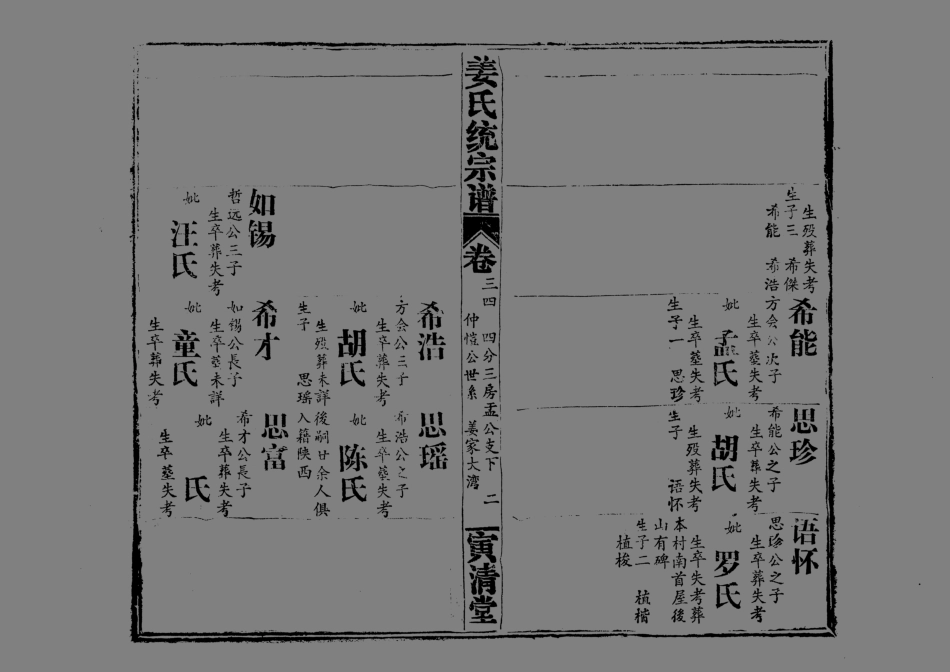 生殁葬失考
生子三 希傑
希能 希浩
希能
方会公次子
生卒墓失考
妣 孟氏
生卒墓失考
生子一 思珍
思珍
希能公之子
生卒葬失考
妣 胡氏
生殁葬失考
生子 语怀
语怀
思珍公之子
生卒葬失考
妣 罗氏
生卒失考葬
本村南首屋後
山有碑
生子二 植楷
植梭
姜氏统宗谱
卷
三四 四分三房孟公支下 二
仲愷公世系 姜家大湾
寅清堂
希浩
方会公三子
生卒葬失考
妣 胡氏
生殁葬未詳
生子 思瑶
思瑶
希浩公之子
生卒葬失考
妣 陈氏
後嗣廿余人俱
入籍陕西
如锡
哲远公三子
生卒葬失考
妣 汪氏
希才
如锡公長子
生卒墓未詳
妣 童氏
生卒葬失考
思富
希才公長子
生卒葬失考
妣 氏
生卒墓失考